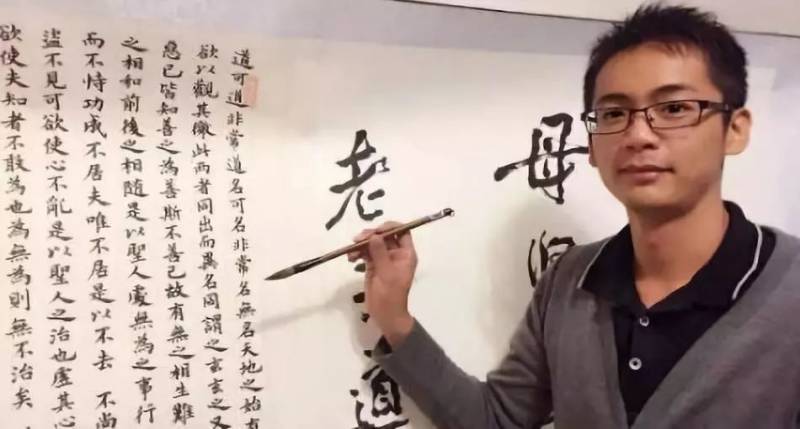 母
老
道
道可道非常道名可名非常名無名天地之始有
欲以觀其徼此兩者同出而異名同謂之玄玄之又
惡已皆知善之為善斯不善已故有無之相生難
之相和前後之相隨是以聖人處無為之事行
而不恃功成不居夫唯不居是以不去 不尚
盜不見可欲使心不亂是以聖人之治也虛其心
欲使夫知者不敢為也為無為則無不治矣